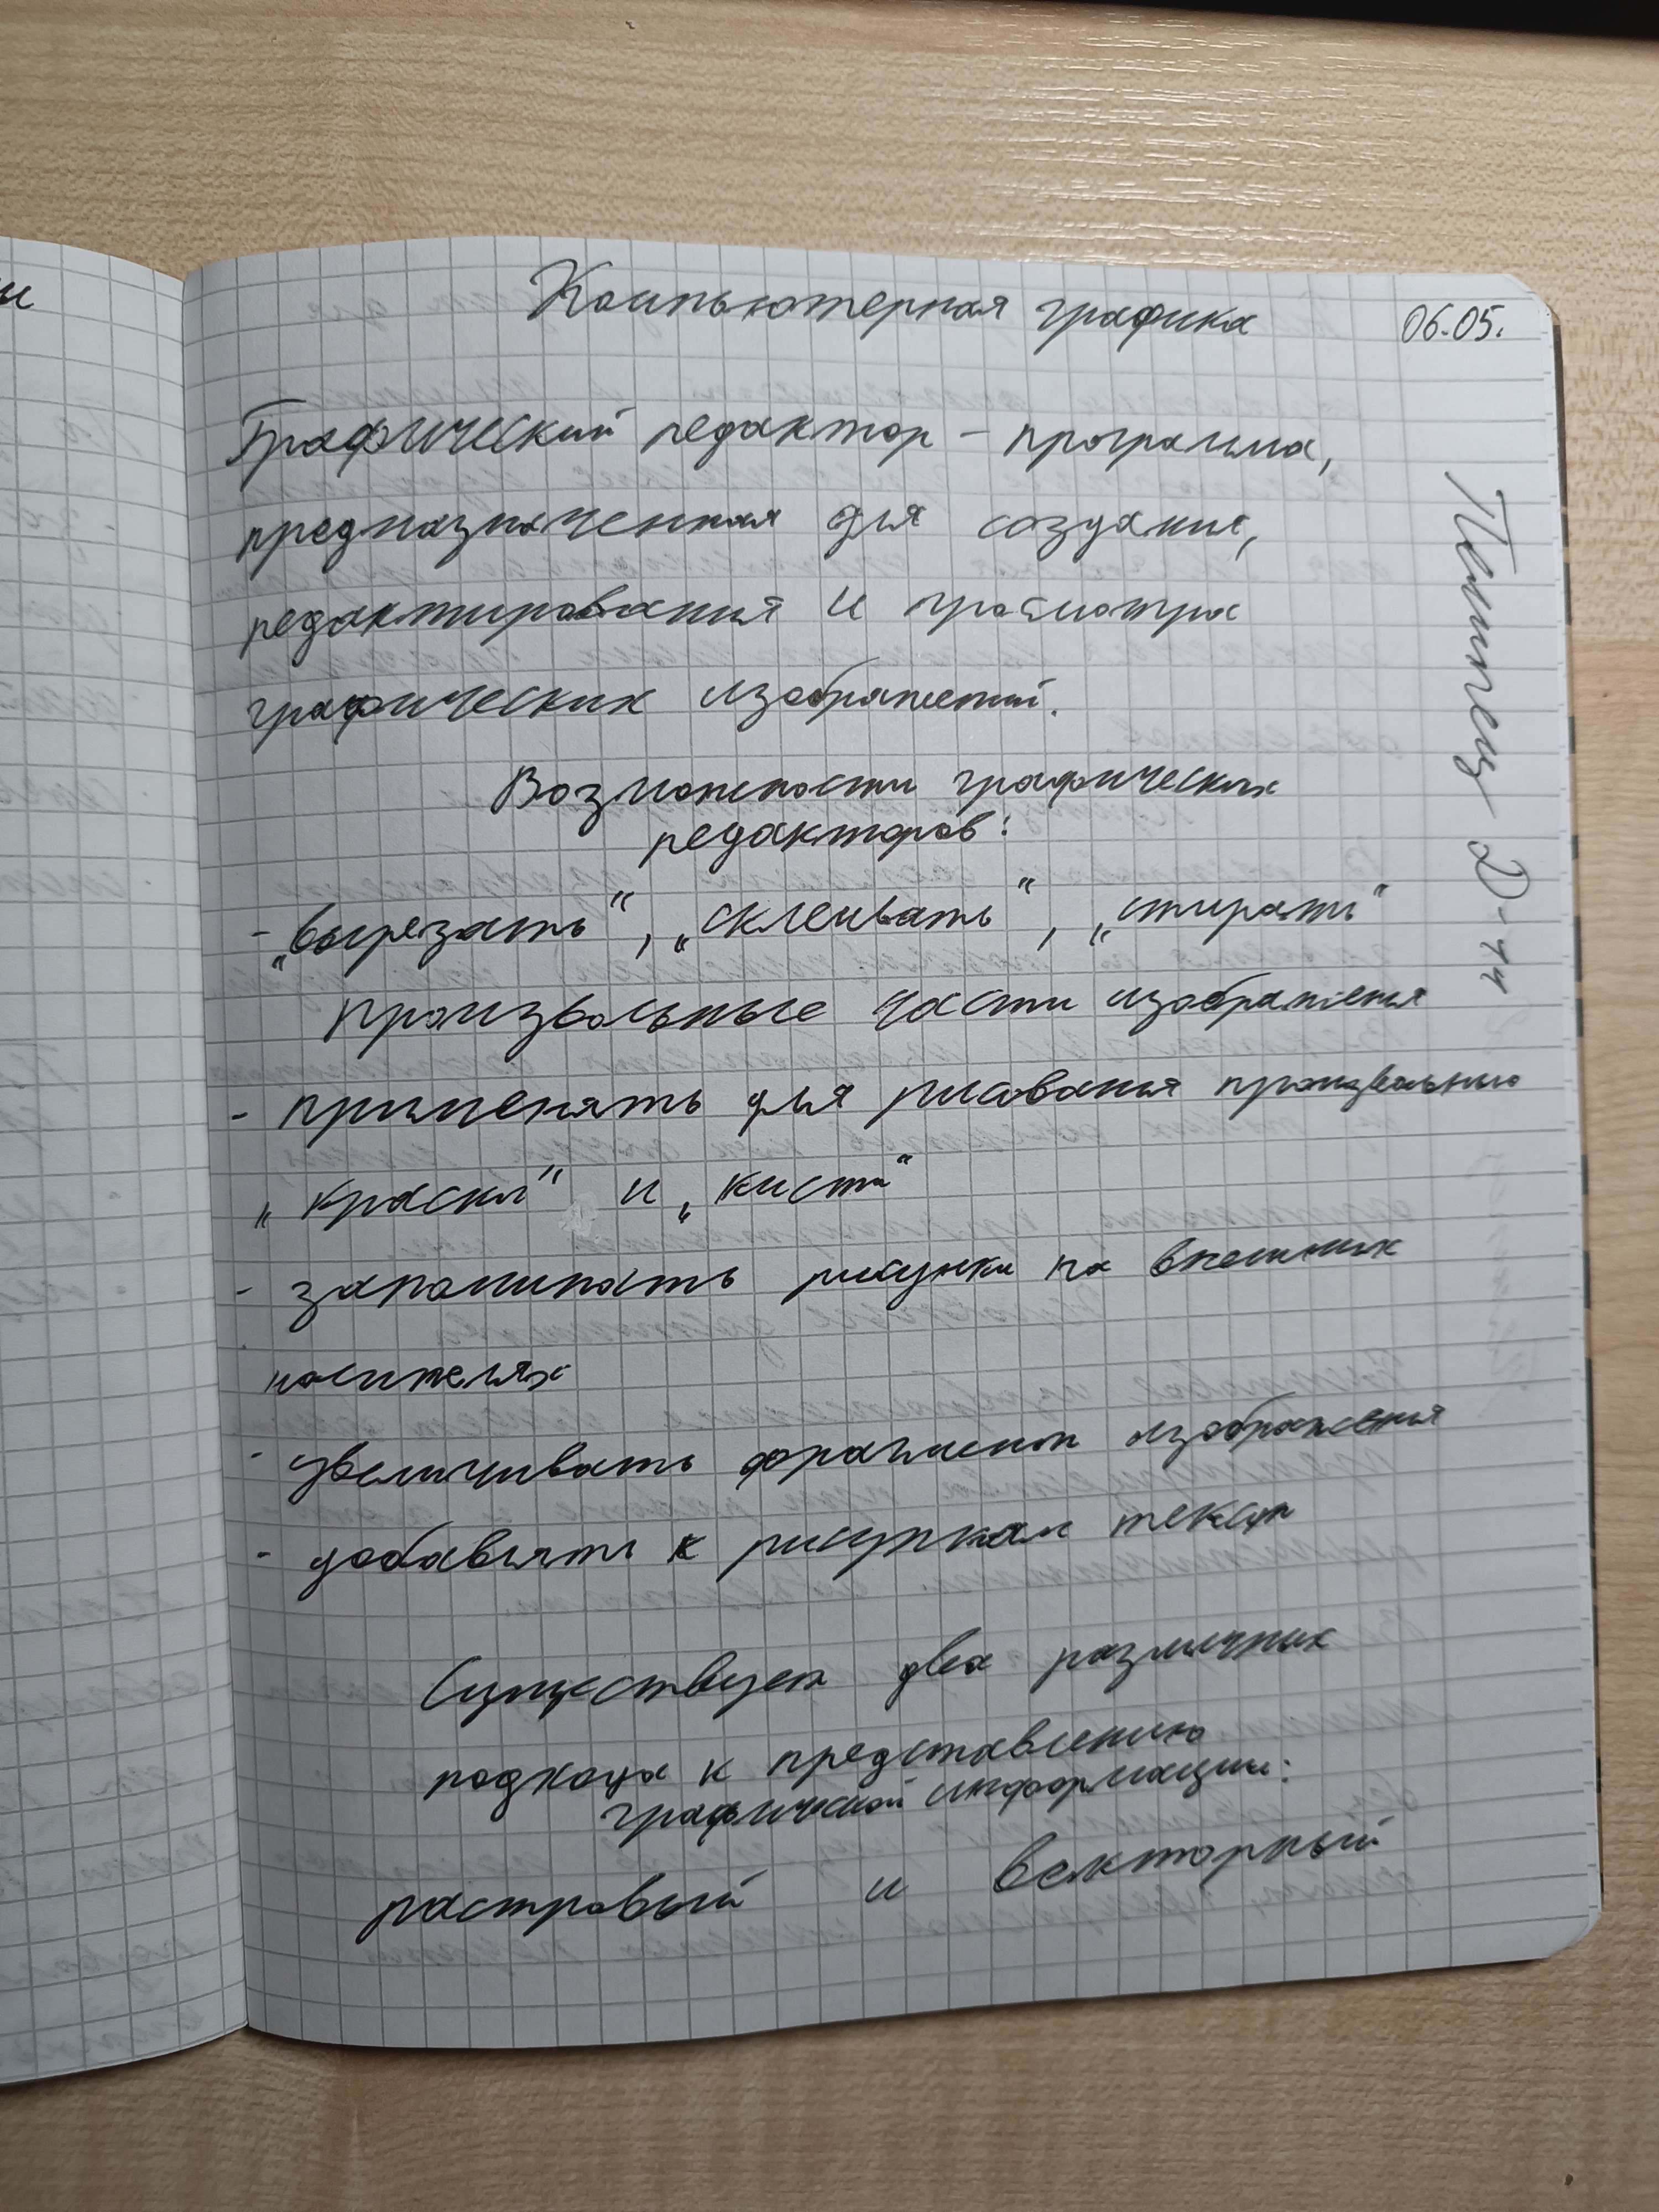 Компьютерная графика
06.05.
Графический редактор – программа,
предназначенная для создания,
редактирования и просмотра
графических изображений.
Возможности графических
редакторов:
- „вырезать“, „склеивать“, „стирать“
произвольные части изображения
- применять для рисования произвольные
„краски“ и „кисти“
- запоминать рисунки на внешних
носителях
- увеличивать фрагмент изображения
- добавлять к рисункам текст
Существует два различных
подхода к представлению
графической информации:
растровый и векторный
Д-11